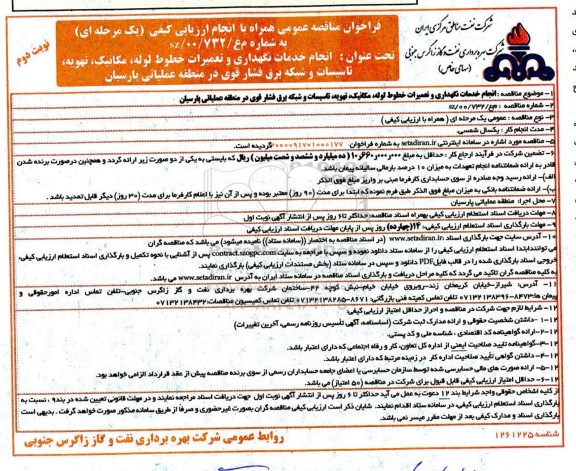 شرکت نفت مناطق مرکزی ایران
شرکت بهره برداری نفت و گاز زاگرس جنوبی
(سهامی خاص)
فراخوان مناقصه عمومی همراه با انجام ارزیابی کیفی (یک مرحله ای)
به شماره م‌ع/۰۰/۷۳۲/%
تحت عنوان : انجام خدمات نگهداری و تعمیرات خطوط لوله، مکانیک، تهویه،
تاسیسات و شبکه برق فشار قوی در منطقه عملیاتی پارسیان
نوبت دوم
۱- موضوع مناقصه : انجام خدمات نگهداری و تعمیرات خطوط لوله، مکانیک، تهویه، تاسیسات و شبکه برق فشار قوی در منطقه عملیاتی پارسیان
۲- شماره مناقصه : م‌ع/۰۰/۷۳۲/%
۳- نوع مناقصه : عمومی یک مرحله ای ( همراه با ارزیابی کیفی)
۴- مدت انجام کار : یکسال شمسی.
۵- مناقصه مورد اشاره در سامانه اینترنتی setadiran.ir به شماره فراخوان ۲۰۰۰۰۹۱۷۰۱۰۰۰۱۷۷ گردیده است.
۶- تضمین شرکت در فرآیند ارجاع کار : حداقل به مبلغ ۱۰,۶۶۰,۰۰۰,۰۰۰ (ده میلیارد و ششصد و شصت میلیون) ریال که بایستی به یکی از دو صورت زیر ارائه گردد و همچنین درصورت برنده شدن
قادر به ارائه ضمانتنامه انجام تعهدات به میزان ۱۰ درصد بارمالی سالینه پیمان باشد.
الف)- ارائه رسید وجه صادره از سوی حسابداری کارفرما مبنی بر واریز مبلغ فوق الذکر
ب)- ارائه ضمانتنامه بانکی به میزان مبلغ فوق الذکر طبق فرم نمونه که ابتدا برای مدت (۹۰ روز) معتبر بوده و پس از آن نیز با اعلام کارفرما برای مدت (۳۰ روز) دیگر قابل تمدید باشد .
۷- محل اجرا: منطقه عملیاتی پارسیان
۸- مهلت دریافت اسناد استعلام ارزیابی کیفی بهمراه اسناد مناقصه: حداکثر تا ۶ روز پس از انتشار آگهی نوبت اول
۹- مهلت بارگذاری اسناد استعلام ارزیابی کیفی: ۱۴ (چهارده) روز پس از پایان مهلت دریافت اسناد ارزیابی کیفی
۱۰- آدرس سایت جهت بارگذاری اسناد :www.setadiran.ir (در اسناد مناقصه به اختصار ((سامانه ستاد)) نامیده میشود) می باشد که مناقصه گران
می توانند ابتدا اسناد استعلام ارزیابی کیفی را از سامانه ستاد دانلود نموده و سپس با مراجعه به سایت contract.szogpc.com پس از آشنایی با نحوه تکمیل و بارگذاری اسناد استعلام ارزیابی کیفی،
خروجی اسناد بارگذاری شده را در قالب فایل PDF دانلود و سپس در سامانه ستاد (بخش مستندات ارزیابی کیفی) بارگذاری نمایند.
به کلیه مناقصه گران تاکید می گردد که کلیه مراحل دریافت و بارگذاری اسناد مناقصه در سامانه ستاد ایران به آدرس www.setadiran.ir می باشد.
۱۱- آدرس: شیراز-خیابان کریمخان زند-روبروی خیابان خیام-نبش کوچه ۴۲-ساختمان شرکت بهره برداری نفت و گاز زاگرس جنوبی-تلفن تماس اداره امورحقوقی و
پیمان ها ۸۴۷۳-۰۷۱۳۲۱۳۸۳۹۶ تلفن تماس کمیته فنی بازرگانی: ۸۶۷۱-۰۷۱۳۲۱۳۸۲۸۵ تلفن تماس کمیسیون مناقصات: ۰۷۱۳۲۱۳۸۴۳۲
۱۲- شرایط لازم جهت شرکت در مناقصه و احراز حداقل امتیاز ارزیابی کیفی:
۱-۱۲- داشتن شخصیت حقوقی و ارائه مدارک ثبت شرکت (اساسنامه، آگهی تأسیس روزنامه رسمی، آخرین تغییرات)
۲-۱۲- ارائه گواهینامه کد اقتصادی ، شناسه ملی و کد پستی.
۳-۱۲- گواهینامه تایید صلاحیت ایمنی از اداره کل تعاون، کار و رفاه اجتماعی که دارای اعتبار باشد.
۴-۱۲- داشتن گواهی تأیید صلاحیت اداره کار در زمینه مرتبط که دارای اعتبار باشد.
۵-۱۲- ارائه صورت های مالی حسابرسی شده توسط سازمان حسابرسی یا اعضای جامعه حسابداران رسمی از سوی برنده مناقصه پیش از عقد قرارداد الزامی خواهد بود.
۶-۱۲- حداقل امتیاز ارزیابی کیفی قابل قبول برای شرکت در مناقصه (۵۰ امتیاز) می باشد.
از کلیه اشخاص حقوقی واجد شرایط بند ۱۲ دعوت به عمل می آید حداکثر تا ۶ روز پس از انتشار آگهی نوبت اول جهت دریافت اسناد مراجعه نمایند و در مهلت قانونی تعیین شده در بند ۹ ، نسبت به
بارگذاری اسناد استعلام ارزیابی کیفی، در سامانه ستاد اقدام نمایند. شایان ذکر است ارزیابی کیفی مناقصه گران بصورت غیرحضوری و صرفا از طریق سامانه مذکور صورت خواهد گرفت . بدیهی است
بارگذاری اسناد و مدارک کیفی بعد از مهلت مقرر میسر نمی باشد.
روابط عمومی شرکت بهره برداری نفت و گاز زاگرس جنوبی
شناسه ۱۲۶۱۲۲۵